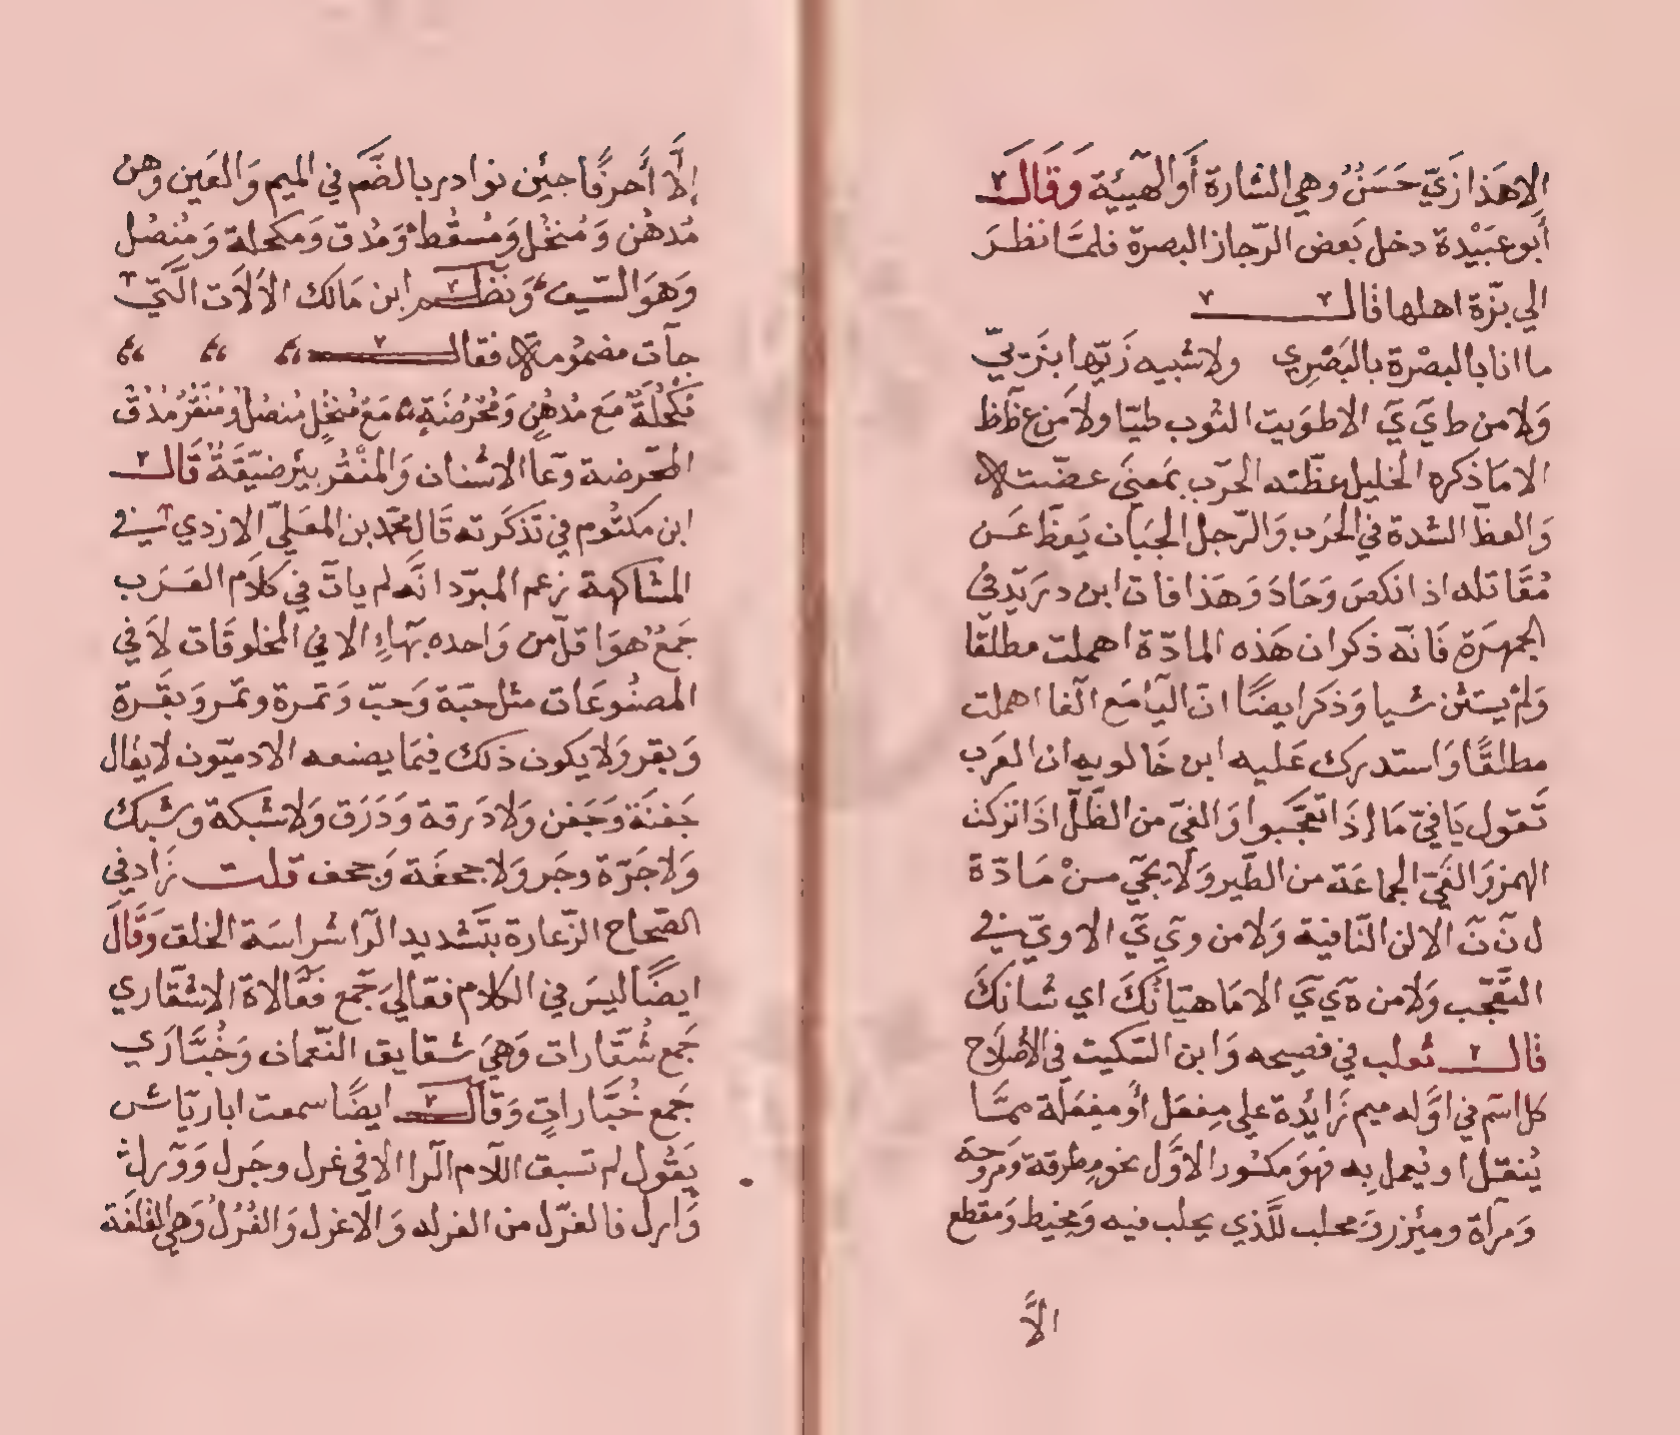 الا هَذا زَيّ حَسَنٌ وهي الشارة أَو الهيئة وَقَالَ
أبو عبَيْدة دخل بَعض الرّجاز البصرة فلمَّا نظرَ
الي بزّة اهلها قال
ما انا بالبصْرة بالبَصْرِي ولا شبيه زَيّها بزَيّي
وَلا من ط يَ يَ الا طوَيت الثوب طيّا ولا مَن ع ظ ظ
الا مَا ذكره الخليل عظّته الحَرب بمَعنَى عضّته
وَالعظّ الشدة في الحَرب وَالرّجل الجبَان يَعظّ عَن
مُقَاتله اذا نكصَ وَحَادَ وَهَذا فات ابن دريَد في
الجمهَرَة فَانّه ذكر ان هَذه المادّة اهملت مطلقا
وَلَم يستثن شيا وَذكر ايضًا انّ اليَا مَع الفا اهملت
مطلقًا وَاستدرك عَليه ابن خَالويه ان العَرب
تَقول يَا فيّ مَا لي اذَا تعجَّبوا وَالفيّ من الظّلّ اذَا تركت
الهمز وَالفَيّ الجماعَة من الطّير وَلا يجَيّ منْ مَادّة
ل نَ نَ الا لن النّافية وَلا من و يَ يَ الا ويّ في
التَّعَجّب وَلا من ه يَ يَ الا مَا هيَانكَ اي شانكَ
قال ثعلب في فصيحه وَابن السّكيت في الاصْلاَح
كل اسم في اوَّله ميم زَائدة علي مِفعَل أَو مِفعَلة ممَّا
يُنقل او يُعمل به فهوَ مَكسُور الاوَّل نحو مِطرقة وَمروحَة
وَمرآة ومئزر وَمحلب للَّذي يحلب فيه وَمخيط وَمقطع
الاَّ
إلاَّ أَحرفًا جئن نوادر بالضَّم في الميم وَالعَين وَهن
مُدهُن وَمُنخُل وَمُسقُط وَمُدق وَمكحلة وَمُنصُل
وَهوَ السَّيف وَنظم ابن مَالك الاَلاَت الَّتي
جآت مضمُومة فقال
مُكْحُلَةٌ مَع مُدهُنٍ وَمُحْرُضَةٍ مَعْ مُنخُلٍ مُنصُلٌ وَمُنْقُرٌ مُدُقْ
المحرضة وعَا الاشنان وَالمُنْقُر بير ضيّقَةٌ قَالَ
ابن مكتُوم في تَذكَرته قَال محمّد بن المعَليّ الازدي في
المشَاكهة زعم المبرّد انَّه لم يات في كلاَم العَرَب
جَمعٌ هوَ اقلّ من وَاحده بهَاءٍ الا في المخلوقَات لاَ في
المصنُوعَات مثل حبّة وَحبّ وَتمَرة وتمَر وَبقَرة
وَبقر وَلا يكون ذلك فيمَا يصنعه الادميّون لا يقال
جَفنَة وَجَفن وَلا دَرقة وَدَرَق وَلا شبكة وشبك
وَلا جَرّة وجَر وَلا جحفَة وَجحف قلت زَاد في
الصّحاح الزّعارة بتَشديد الرّا شراسَة الخلق وَقَالَ
ايضًا ليسَ في الكلام فعّاليَ جَمع فعَّالاة الا شقّاري
جَمع شُقّارات وَهيَ شقايق النّعمان وَخُبَّازَي
جَمع خُبَّازاتٍ وَقال ايضًا سمعت ابا ريَاش
يَقُول لم تسبق اللاَم الرا الا في غرل وجَرل وَوَرل
وَارل فالغرَل من الغرله وَالاَغرل وَالغُرُل وَهيَ القلفَة